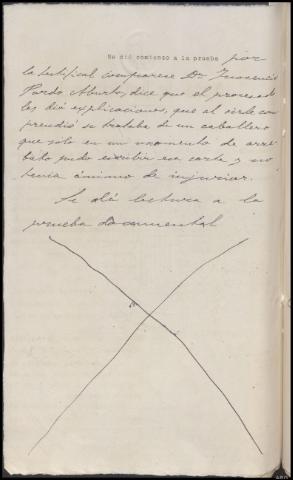 Se dió comienzo a la prueba por
la testifical comparece Dn Inocencio
Pardo Aburto, dice que el procesado
les dió explicaciones, que al verle com
prendió se trataba de un caballero
que solo en un momento de arre
bato pudo escribir esa carta y no
tenia ánimo de injuriar.
Se dá lectura a la
prueba documental